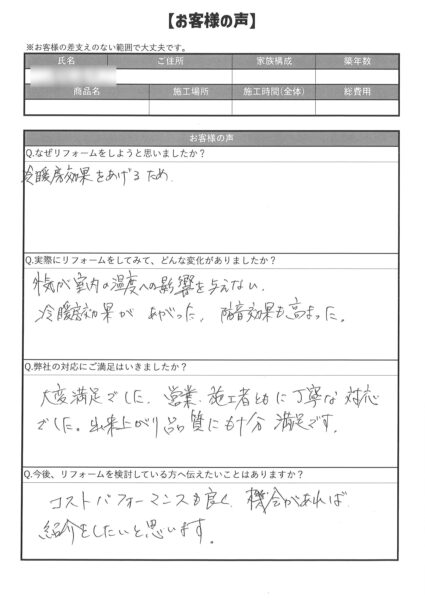 【お客様の声】
※お客様の差支えのない範囲で大丈夫です。
氏名 ご住所 家族構成 築年数
商品名 施工場所 施工時間(全体) 総費用
お客様の声
Q.なぜリフォームをしようと思いましたか？
冷暖房効果をあげるため.
Q.実際にリフォームをしてみて、どんな変化がありましたか？
外気が室内の温度への影響を与えない.
冷暖房効果が あがった, 防音効果も高まった。
Q.弊社の対応にご満足はいきましたか？
大変満足でした. 営業、施工者ともに丁寧な対応
でした。出来上がり品質にも十分 満足です。
Q.今後、リフォームを検討している方へ伝えたいことはありますか？
コストパフォーマンスも良く、機会があれば
紹介をしたいと思います。